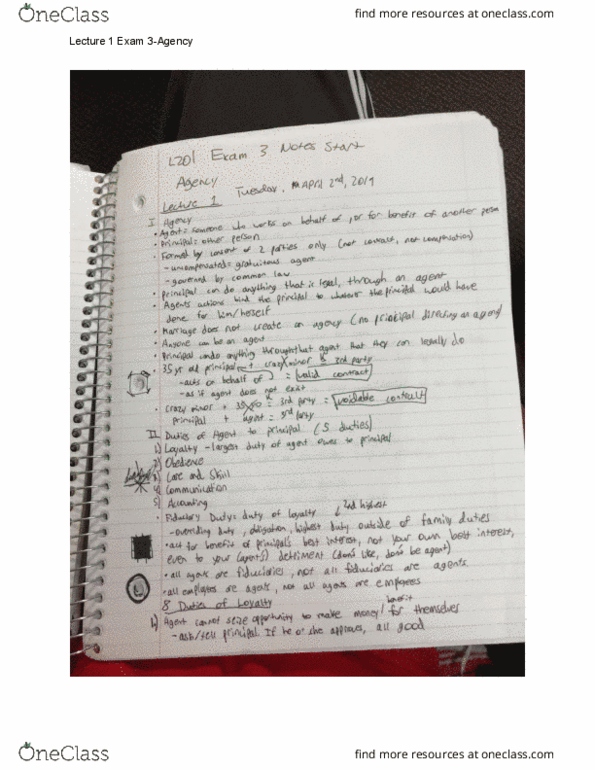 OneClass
find more resources at oneclass.com
Lecture 1 Exam 3-Agency
L201 Exam 3 Notes Start
Agency
Tuesday, April 2nd, 2019
Lecture 1
I. Agency
• Agent = someone who works on behalf of, or for benefit of another person
• Principal = other person
• Formed by consent of 2 parties only (not contract, not compensation)
- uncompensated = gratuitous agent
- governed by common law
• principal can do anything that is legal, through an agent
• Agents actions bind the principal to whatever the principal would have
done for him/herself
• Marriage does not create an agency (no principal directing an agent)
• Anyone can be an agent
• Principal can do anything through that agent that they can legally do
• 35 yr old principal + crazy minor 3rd party
- acts on behalf of = valid contract
- as if agent does not exist
• Crazy minor + 35 yo = 3rd party = voidable contract
principal + agent = 3rd party
II Duties of Agent to principal (5 duties)
1) Loyalty - largest duty of agent owes to principal
2) Obedience
3) Care and Skill
4) Communication
5) Accounting
2nd highest
• Fiduciary Duty: duty of loyalty
- overriding duty, obligation, highest duty outside of family duties
• act for benefit of principal's best interest, not your own best interest,
even to your (agents) detriment (don't like, don't be agent)
• all agents are fiduciaries, not all fiduciaries are agents
• all employees are agents, not all agents are employees
8 Duties of Loyalty
benefit
1) Agent cannot seize opportunity to make money/ for themselves
- ask/tell principal. If he or she approves, all good
OneClass
find more resources at oneclass.com